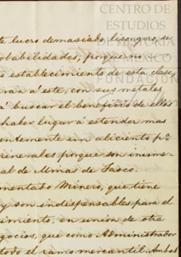 CENTRO DE
ESTUDIOS
DE HISTORIA
DE MÉXICO
FUNDACIÓN
te lucro demasiado lisongero, se
obabilidades, porque no
o establecimiento de esta clase,
ran á este, con sus metales
á buscar el beneficio de ellos
haber lugar á estender mas
ntemente un aliciente pa
minerales porque son innume
al de Minas de Tasco.
mentado Minero, que tiene
y son indispensables para el
imiento, en union de otro
gocios, que como Administrador
todo el ramo mercantil. Ambos